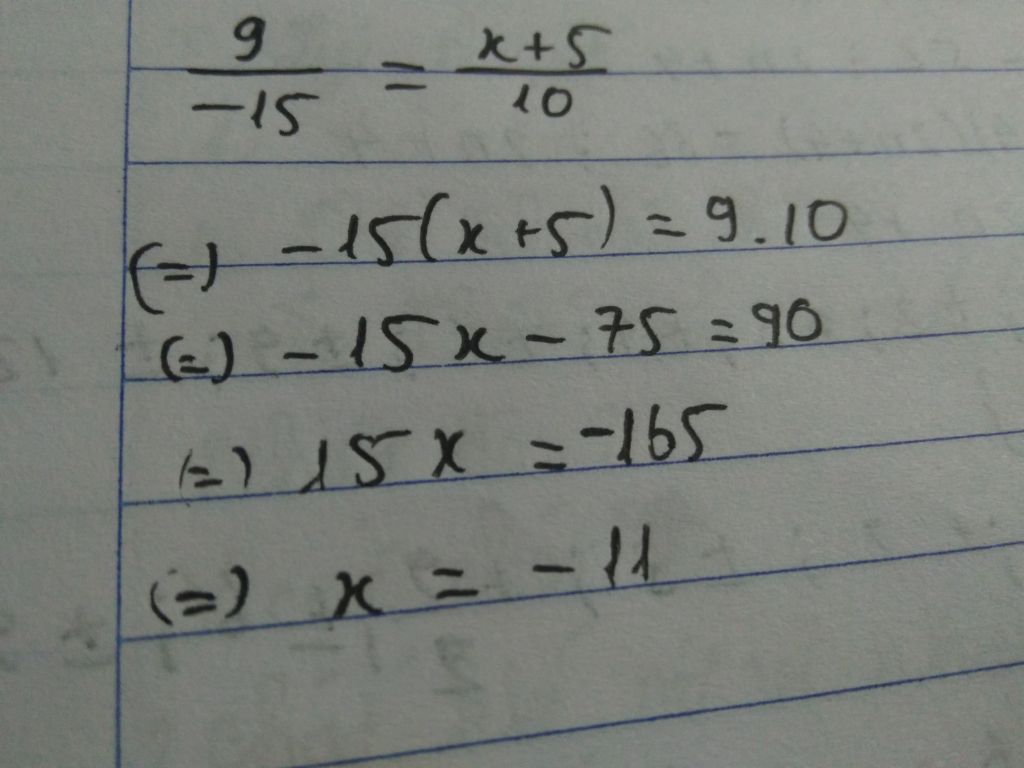 9/-15 = x+5/10
(=) -15(x+5) = 9.10
(=) -15x - 75 = 90
(=) 15x = -165
(=) x = -11